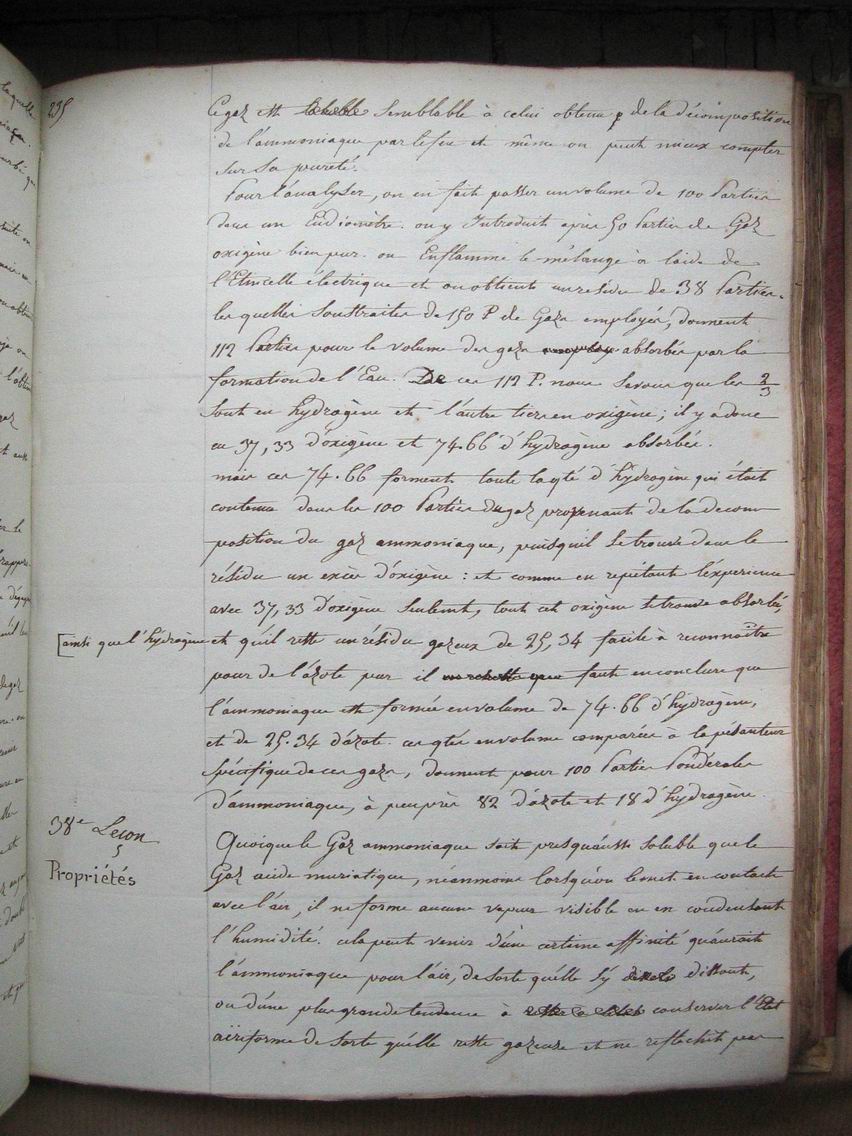 235
Ce gaz est semblable à celui obtenu p de la décomposition
de l'ammoniaque par le feu et même on peut mieux compter
sur sa pureté.
Pour l'analyser, on en fait passer un volume de 100 Parties
dans un Eudiomètre. on y Introduit après 50 Parties de Gaz
oxigène bien pur. on Enflamme le mélange à laide de
l'Etincelle électrique et on obtient un residu de 38 Parties.
les quelles soustraites de 150 P de Gazs employés, donnent
112 Parties pour le volume des gazs absorbés par la
formation de l'Eau. De ces 112 P. nous savons que les 2/3
sont en hydrogène et l'autre tiers en oxigène; il y a donc
eu 37,33 d'oxigène et 74.66 d'hydrogène absorbés.
mais ces 74.66 forment toute la qté d'hydrogène qui était
contenue dans les 100 Parties du gaz provenant de la decom
position du gaz ammoniaque, puisquil se trouve dans le
résidu un excès d'oxigène: et comme en repétant l'expérience
avec 37,33 d'oxigène seulemt, tout cet oxigène se trouve absorbé,
[ainsi que l'hydrogène et qu'il reste un résidu gazeux de 25,34 facile à reconnaitre
pour de l'azote pur il faut en conclure que
l'ammoniaque est formée en volume de 74.66 d'hydrogène,
et de 25.34 d'azote. ces qtés en volume comparées à la pésanteur
spécifique de ces gazs, donnent pour 100 Parties Pondérales
d'ammoniaque, à peu près 82 d'azote et 18 d'hydrogène.
38e Lecon
Propriétés
Quoique le Gaz ammoniaque soit presqu'aussi soluble que le
Gaz acide muriatique, néanmoins lorsqu'on le met en contact
avec l'air, il ne forme aucune vapeur visible ou en condensant
l'humidité. cela peut venir d'une certaine affinité qu'aurait
l'ammoniaque pour l'air, de sorte qu'elle s'y dissout,
ou d'une plus grande tendance à conserver l'Etat
aériforme de sorte qu'elle reste gazeuse et ne reflechit pas